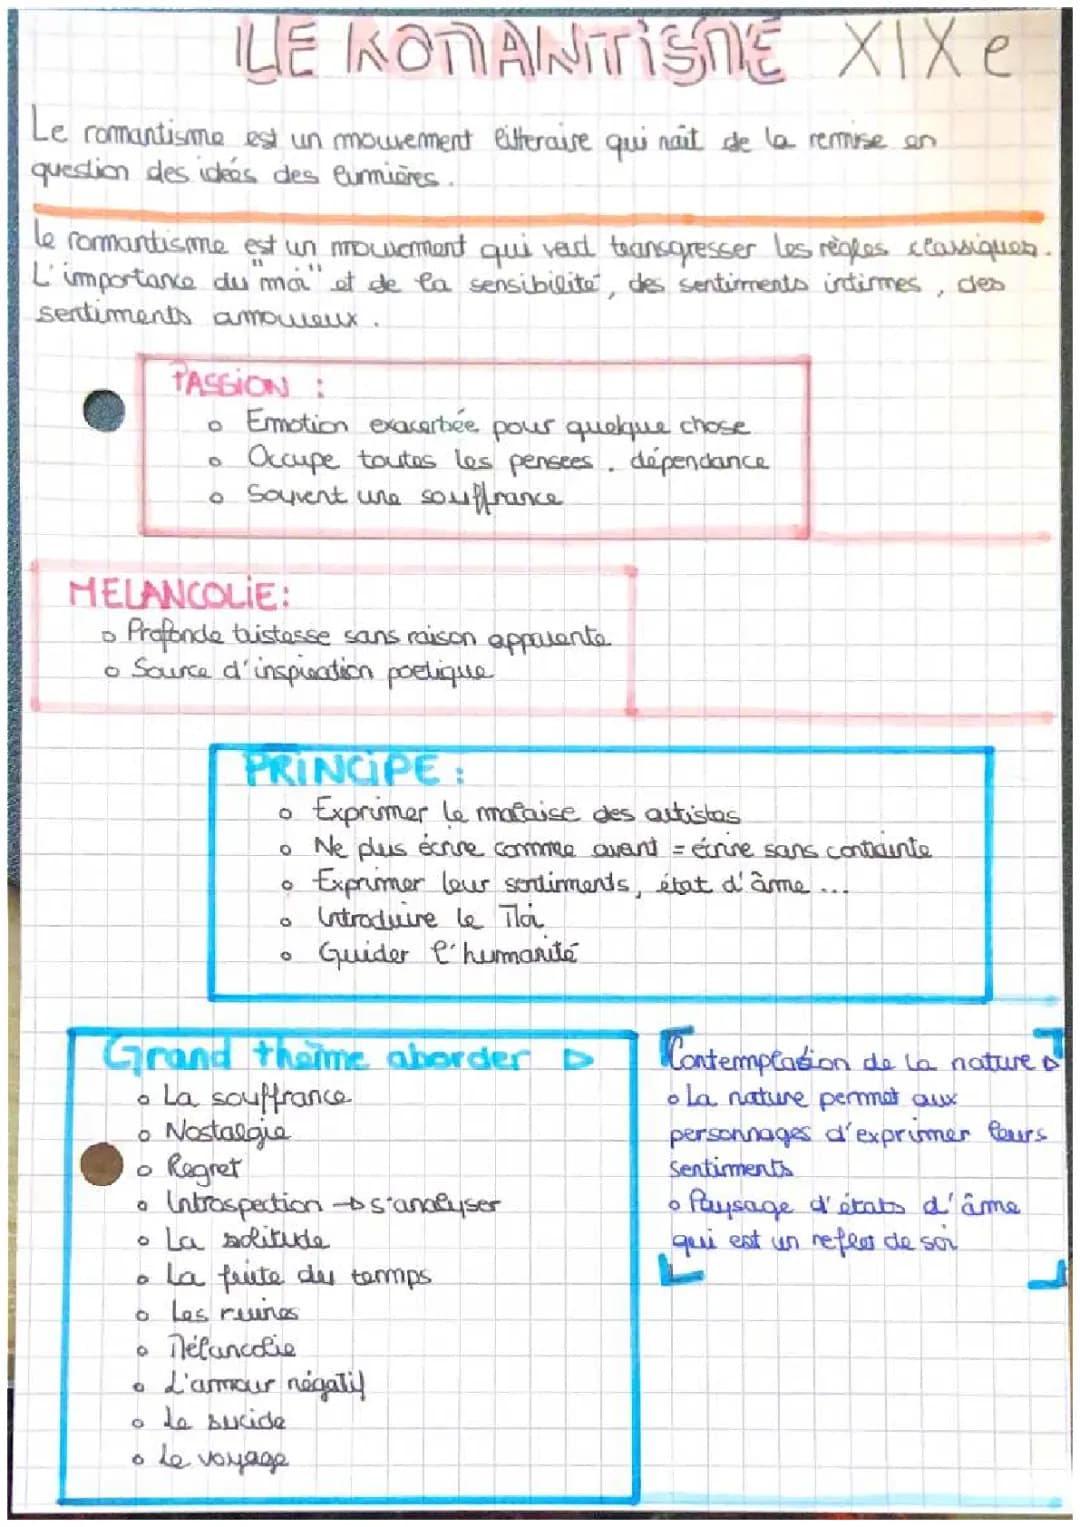 LE ROMANTISME XIXe
Le romantisme est un mouvement litteraire qui naît de la remise en
question des idées des lumières.
le romantisme est un mouvement qui veut transgresser les règles classiques.
L'importance du "moi" et de la sensibilité, des sentiments intimes, des
sentiments amoureux.
PASSION :
o Emotion exacerbée pour quelque chose
o Occupe toutes les pensees. dépendance
o Souvent une souffrance
MELANCOLIE:
o Profonde tristesse sans raison apparente
o Source d'inspiration poetique
PRINCIPE :
o Exprimer le malaise des artistes
o Ne plus écrire comme avant = écrire sans contrainte
o Exprimer leur sentiments, état d'âme ...
o Introduire le Moi
o Guider l'humanité
Grand theme aborder ▷
o La souffrance
o Nostalgie
o Regret
o Introspection → s'analyser
o La solitude
o La fuite du temps
o Les ruines
o Mélancolie
o L'amour négatif
o Le sucide
o Le voyage
Contemplation de la nature ▷
o La nature permet aux
personnages d'exprimer leurs
sentiments
o Paysage d'états d'âme
qui est un reflet de soi